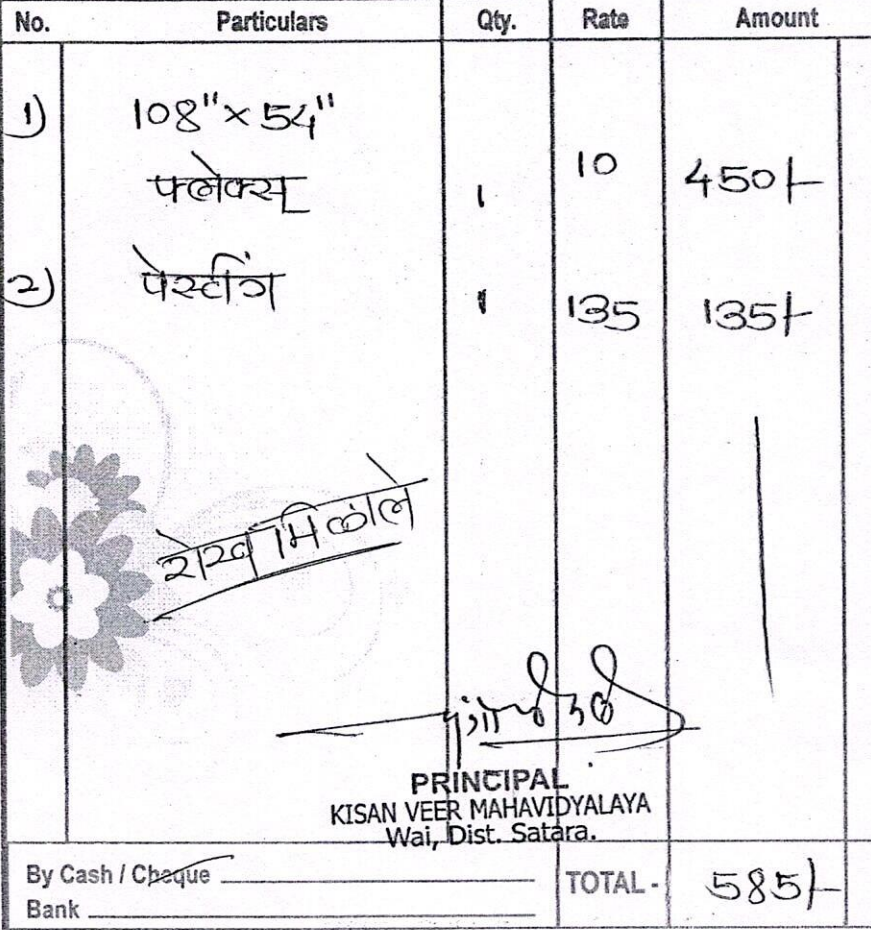 No. Particulars Qty. Rate Amount
1) 108" × 54"
फ्लेक्स 1 10 450/-
2) पेस्टींग 1 135 135/-
रोख मिळाले
PRINCIPAL
KISAN VEER MAHAVIDYALAYA
Wai, Dist. Satara.
By Cash / Cheque
TOTAL - 585/-
Bank